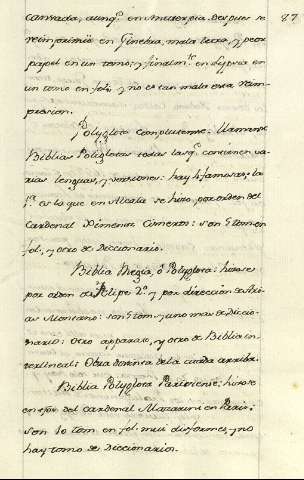 87
cansada, aunq.e en mucha pia. Despues se
reimprimió en Ginebra, mala letra, y peor
papel en un tomo; y finalm.te en Lypsia en
un tomo en fol. y no es tan mala esta reim-
presion.
Polyglota Complutense: Llamanse
Biblias Poliglotas todas las q.e contienen va-
rias lenguas, y versiones: hay 4 famosas; la
1.a es la que en Alcalá se hizo, por orden del
Cardenal Ximenez Cisneros: son 5 tom. en
fol., y otro de Diccionario.
Biblia Regia, ó Polyglota: hizose
por orden de Felipe 2.o y por direccion de Ari-
as Montano: son 5 tom. y uno mas de Dicio-
nario: Otro apparato, y otro de Biblia in-
terlineal: Obra de la citada arriba.
Biblia Polyglota Parisiense: hizose
en tpo. del Cardenal Mazarini en Paris:
son 10 tom. en fol. mui disformes, y no
hay tomo de Diccionarios.